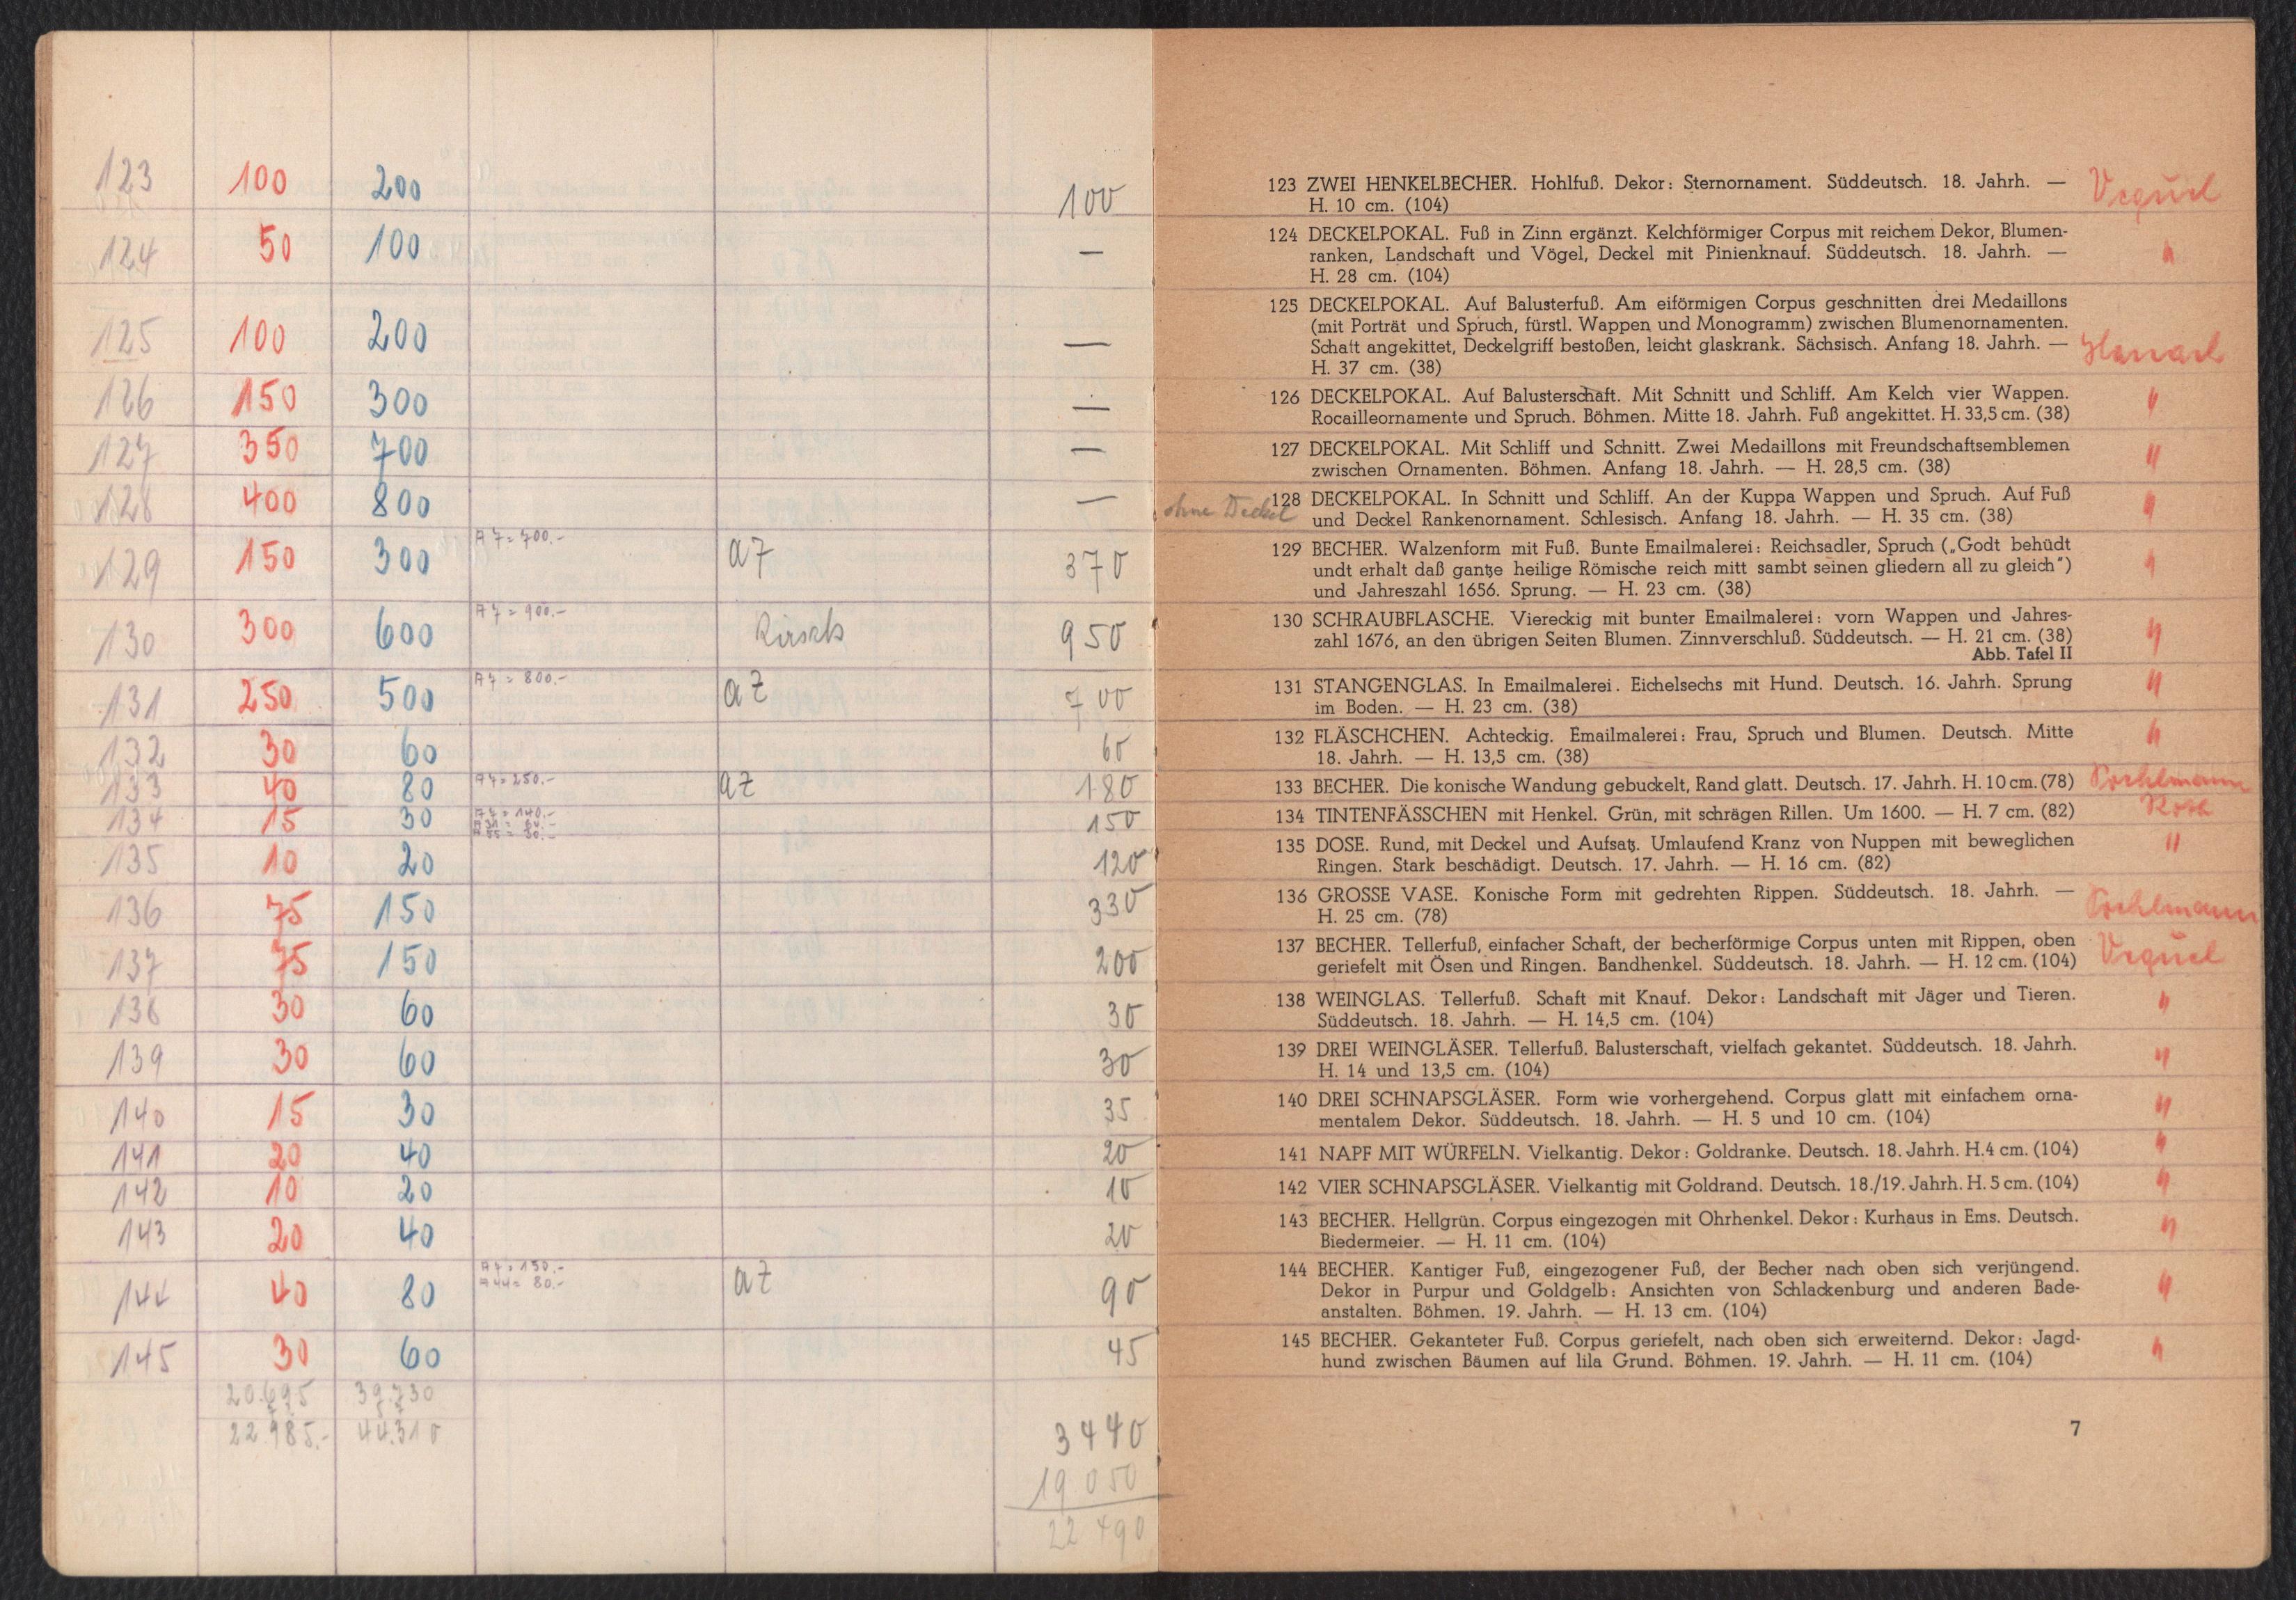 123 100 200 100
124 50 100 —
125 100 200 —
126 150 300 —
127 350 700 —
128 400 800 —
129 150 300 A7 = 700.- a7 370
130 300 600 A7 = 900.- Kirsch 950
131 250 500 A7 = 800.- a7 700
132 30 60 60
133 40 80 A7 = 250.- a7 180
134 15 30 A7 = 140.- 150
135 10 20 120
136 75 150 330
137 75 150 200
138 30 60 30
139 30 60 30
140 15 30 35
141 20 40 20
142 10 20 10
143 20 40 20
144 40 80 A7 = 150.- A44 = 80.- a7 90
145 30 60 45
20.695 39.730
22.985.- 44.310
3440
19 050
22 490
123 ZWEI HENKELBECHER. Hohlfuß. Dekor: Sternornament. Süddeutsch. 18. Jahrh. —
H. 10 cm. (104)
124 DECKELPOKAL. Fuß in Zinn ergänzt. Kelchförmiger Corpus mit reichem Dekor, Blumen-
ranken, Landschaft und Vögel, Deckel mit Pinienknauf. Süddeutsch. 18. Jahrh. — "
H. 28 cm. (104)
125 DECKELPOKAL. Auf Balusterfuß. Am eiförmigen Corpus geschnitten drei Medaillons
(mit Porträt und Spruch, fürstl. Wappen und Monogramm) zwischen Blumenornamenten.
Schaft angekittet, Deckelgriff bestoßen, leicht glaskrank. Sächsisch. Anfang 18. Jahrh. —
H. 37 cm. (38)
126 DECKELPOKAL. Auf Balusterschaft. Mit Schnitt und Schliff. Am Kelch vier Wappen. "
Rocailleornamente und Spruch. Böhmen. Mitte 18. Jahrh. Fuß angekittet. H. 33,5 cm. (38)
127 DECKELPOKAL. Mit Schliff und Schnitt. Zwei Medaillons mit Freundschaftsemblemen "
zwischen Ornamenten. Böhmen. Anfang 18. Jahrh. — H. 28,5 cm. (38)
ohne Deckel 128 DECKELPOKAL. In Schnitt und Schliff. An der Kuppa Wappen und Spruch. Auf Fuß "
und Deckel Rankenornament. Schlesisch. Anfang 18. Jahrh. — H. 35 cm. (38)
129 BECHER. Walzenform mit Fuß. Bunte Emailmalerei: Reichsadler, Spruch („Godt behüdt
undt erhalt daß gantze heilige Römische reich mitt sambt seinen gliedern all zu gleich") "
und Jahreszahl 1656. Sprung. — H. 23 cm. (38)
130 SCHRAUBFLASCHE. Viereckig mit bunter Emailmalerei: vorn Wappen und Jahres- "
zahl 1676, an den übrigen Seiten Blumen. Zinnverschluß. Süddeutsch. — H. 21 cm. (38)
Abb. Tafel II
131 STANGENGLAS. In Emailmalerei. Eichelsechs mit Hund. Deutsch. 16. Jahrh. Sprung "
im Boden. — H. 23 cm. (38)
132 FLÄSCHCHEN. Achteckig. Emailmalerei: Frau, Spruch und Blumen. Deutsch. Mitte "
18. Jahrh. — H. 13,5 cm. (38)
133 BECHER. Die konische Wandung gebuckelt, Rand glatt. Deutsch. 17. Jahrh. H. 10 cm. (78)
134 TINTENFÄSSCHEN mit Henkel. Grün, mit schrägen Rillen. Um 1600. — H. 7 cm. (82)
135 DOSE. Rund, mit Deckel und Aufsatz. Umlaufend Kranz von Nuppen mit beweglichen "
Ringen. Stark beschädigt. Deutsch. 17. Jahrh. — H. 16 cm. (82)
136 GROSSE VASE. Konische Form mit gedrehten Rippen. Süddeutsch. 18. Jahrh. —
H. 25 cm. (78)
137 BECHER. Tellerfuß, einfacher Schaft, der becherförmige Corpus unten mit Rippen, oben
geriefelt mit Ösen und Ringen. Bandhenkel. Süddeutsch. 18. Jahrh. — H. 12 cm. (104)
138 WEINGLAS. Tellerfuß. Schaft mit Knauf. Dekor: Landschaft mit Jäger und Tieren. "
Süddeutsch. 18. Jahrh. — H. 14,5 cm. (104)
139 DREI WEINGLÄSER. Tellerfuß. Balusterschaft, vielfach gekantet. Süddeutsch. 18. Jahrh. "
H. 14 und 13,5 cm. (104)
140 DREI SCHNAPSGLÄSER. Form wie vorhergehend. Corpus glatt mit einfachem orna- "
mentalem Dekor. Süddeutsch. 18. Jahrh. — H. 5 und 10 cm. (104)
141 NAPF MIT WÜRFELN. Vielkantig. Dekor: Goldranke. Deutsch. 18. Jahrh. H. 4 cm. (104) "
142 VIER SCHNAPSGLÄSER. Vielkantig mit Goldrand. Deutsch. 18./19. Jahrh. H. 5 cm. (104) "
143 BECHER. Hellgrün. Corpus eingezogen mit Ohrhenkel. Dekor: Kurhaus in Ems. Deutsch. "
Biedermeier. — H. 11 cm. (104)
144 BECHER. Kantiger Fuß, eingezogener Fuß, der Becher nach oben sich verjüngend.
Dekor in Purpur und Goldgelb: Ansichten von Schlackenburg und anderen Bade- "
anstalten. Böhmen. 19. Jahrh. — H. 13 cm. (104)
145 BECHER. Gekanteter Fuß. Corpus geriefelt, nach oben sich erweiternd. Dekor: Jagd- "
hund zwischen Bäumen auf lila Grund. Böhmen. 19. Jahrh. — H. 11 cm. (104)
7